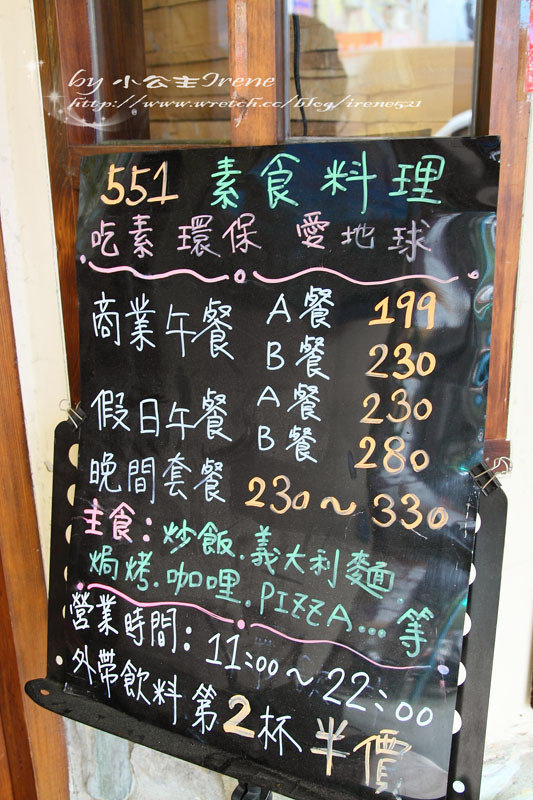 by 小公主Irene
http://www.wretch.cc/blog/irene521
551 素食料理
吃素 環保 愛地球
商業午餐 A餐 199
B餐 230
假日午餐 A餐 230
B餐 280
晚間套餐 230~330
主食:炒飯.義大利麵.
焗烤.咖哩.PIZZA...等
營業時間:11:00~22:00
外帶飲料第2杯半價